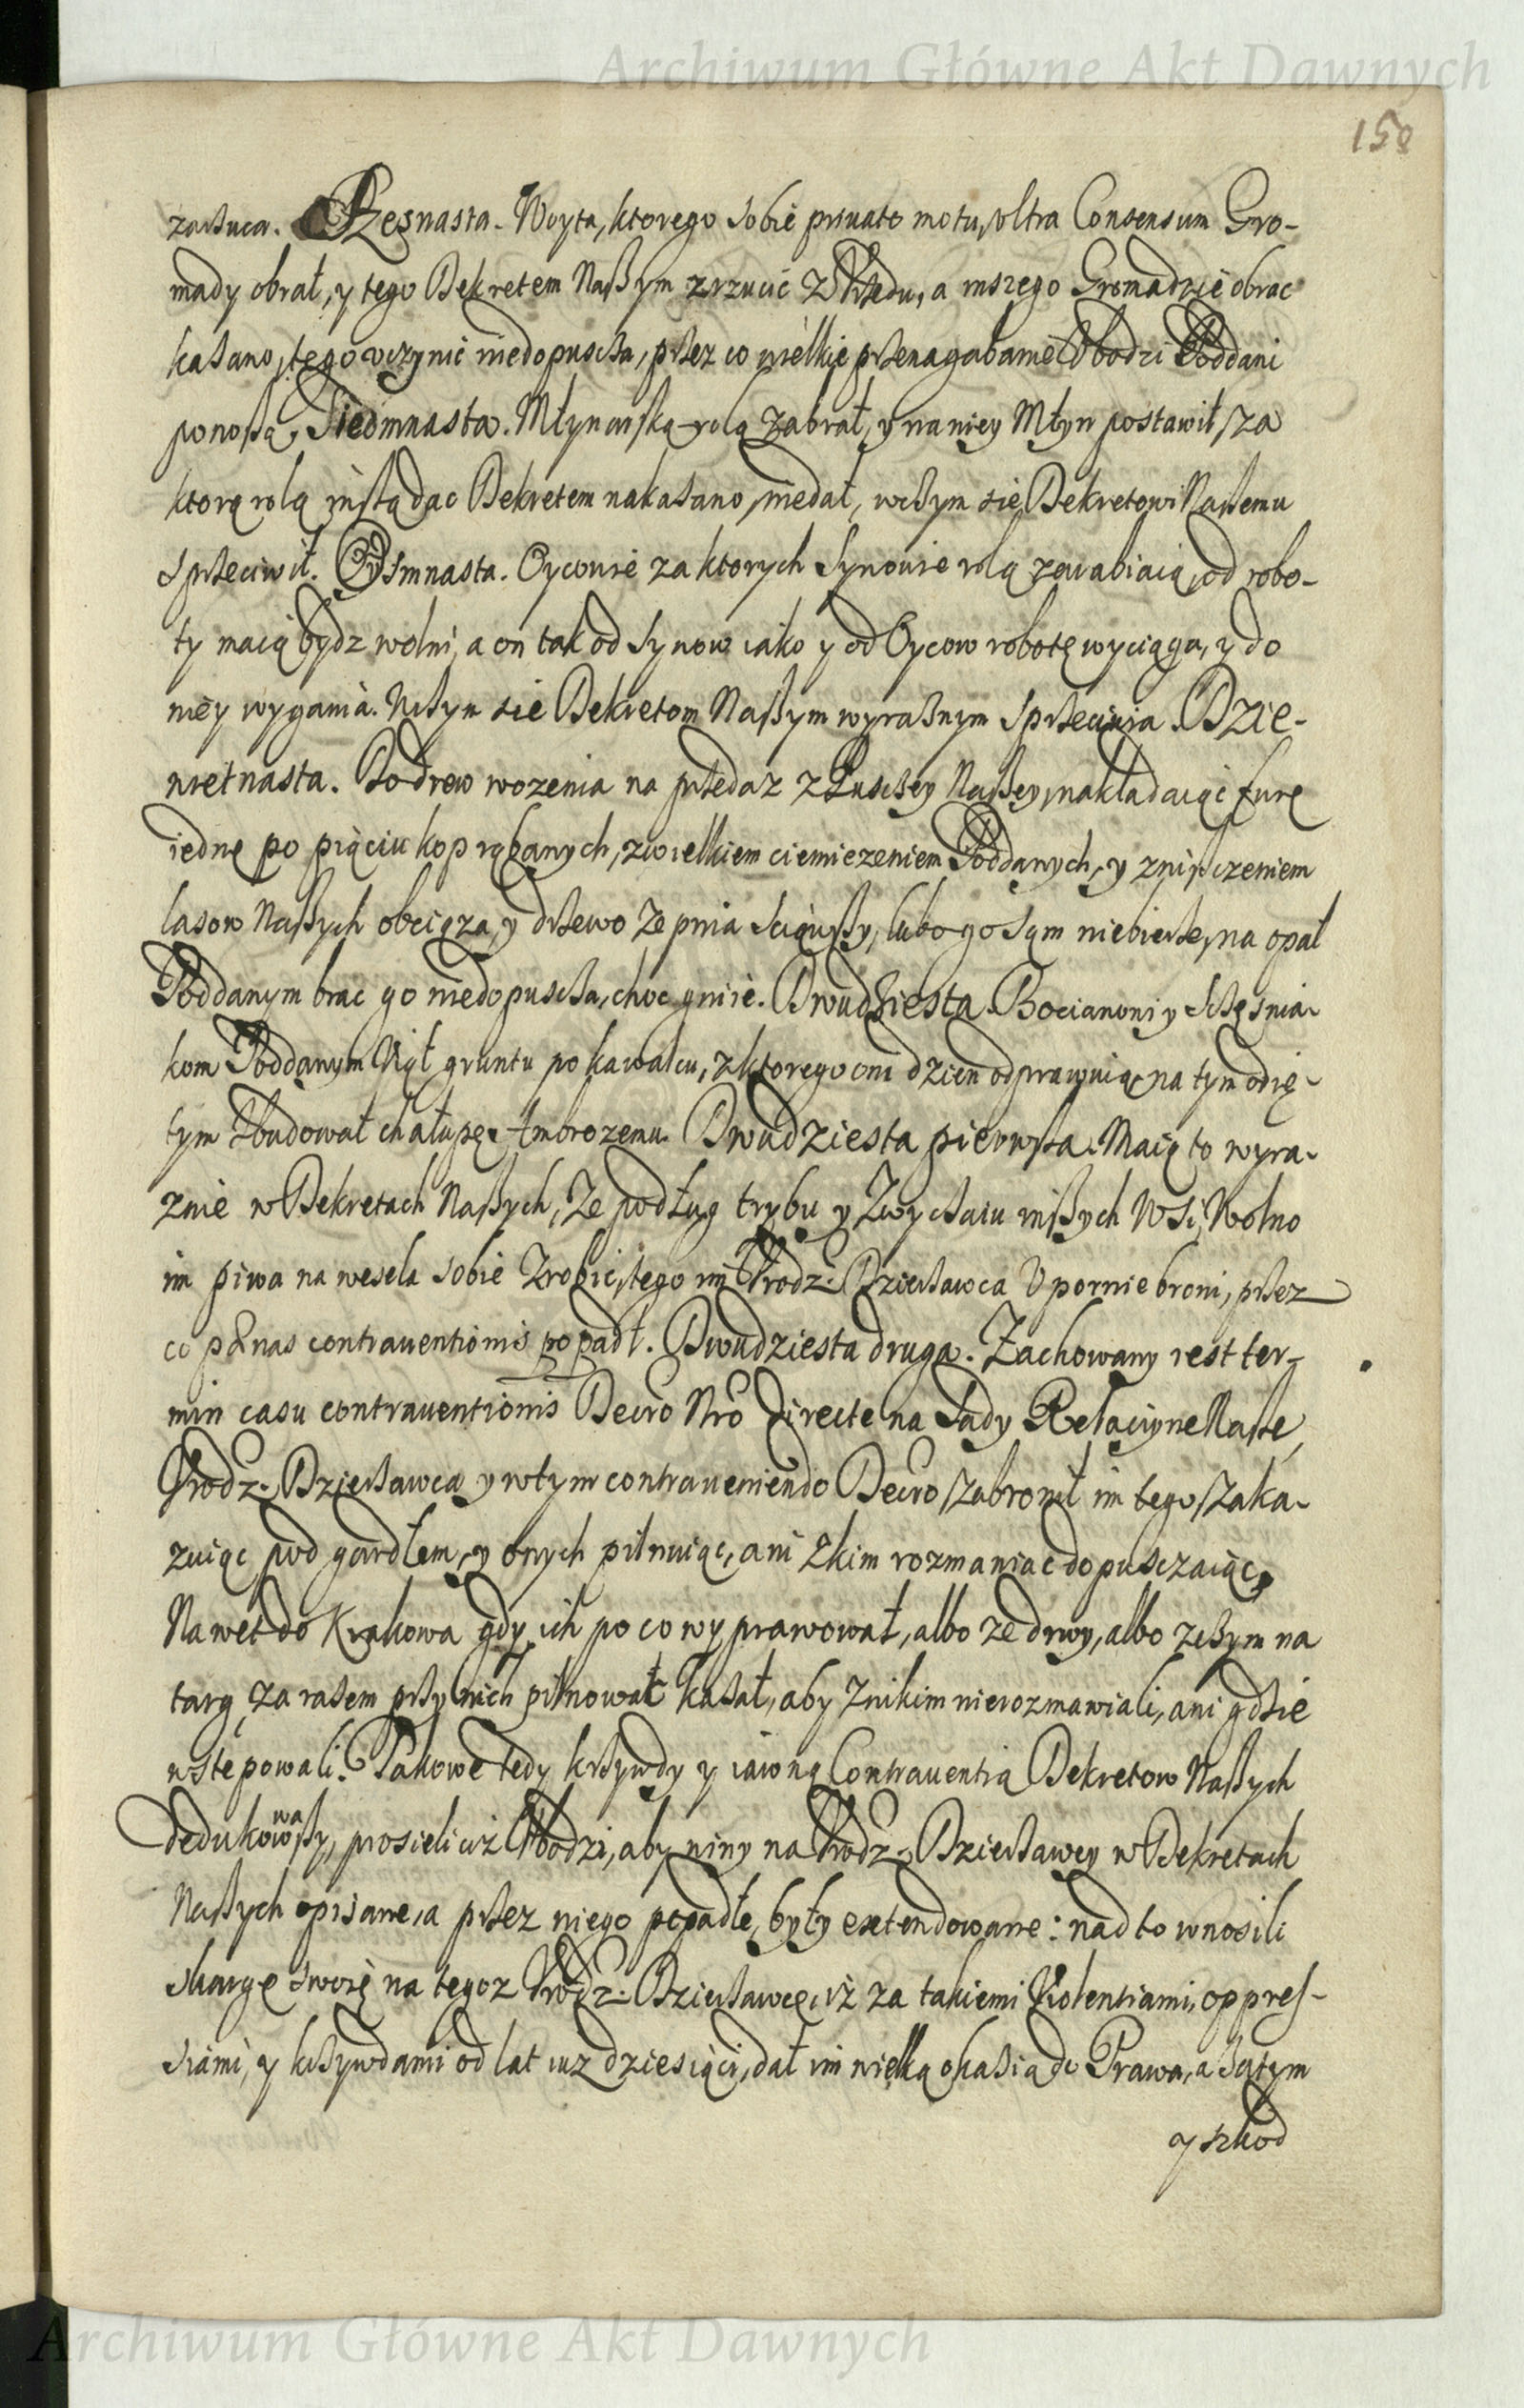 Archiwum Główne Akt Dawnych
158
zarzuca. Szesnasta. Woyta, ktorego sobie priuato motu, vltra Consensum Gro-
mady obrał, y tego Dekretem Naszym zrzucić z Vrzędu, a inszego Gromadzie obrac
kazano, tego vczynić niedopuscza, przez co wielkie przenagabanie Vbodzi Poddani
ponoszą. Siedmnasta. Młynarską rolą zabrał, y na niey Młyn postawił, za
ktorą rolą inszą dac Dekretem nakazano, niedał, wczym sie Dekretowi Naszemu
sprzeciwił. Osmnasta. Oycowie za ktorych Synowie rolą zarabiaią, od robo-
ty maią bydz wolni, a on tak od Synow iako y od Oycow robotę wyciąga, y do
niey wygania. Wczym sie Dekretom Naszym wyraznym sprzeciwia. Dzie-
wietnasta. Do drew wozenia na przedaz z Puszczey Naszey, nakładaiąc furę
iednę po piąciu kop rąbanych, zwielkiem ciemiezeniem Poddanych, y zniszczeniem
lasow Naszych obciąza, y drzewo ze pnia sciąwszy, lubo go sąm niebierze, na opał
Poddanym brac go niedopuscza, choc gniie. Dwudziesta. Bocianowi y Sczęsnia-
kom Poddanym Uiął gruntu po kawalcu, z ktorego oni dzien odprawuią, na tym odię-
tym zbudował chałupę Ambrozemu. Dwudziesta pierwsza. Maią to wyra-
znie w Dekretach Naszych, ze podług trybu y zwyczaiu inszych Wsi, Wolno
im piwa na wesela sobie zrobic, tego im Vrodz: Dzierzawca Vpornie broni, przez
co pænas contrauentionis popadł. Dwudziesta druga. Zachowany iest ter-
min casu contrauentionis Decro Nro directe na Sądy Relacyine Nasze,
Vrodz: Dzierzawca y wtym contraueniendo Decro, zabronił im tego, zaka-
zuiąc pod gardłem, y onych pilnuiąc, ani zkim rozmawiac dopuszczaiąc,
Nawet do Krakowa gdy ich po co wyprawował, albo ze drwy, albo zczym na
targ, zarazem przy nich pilnować kazał, aby znikim nierozmawiali, ani gdzie
wstępowali. Takowe tedy krzywdy y iawną Contrauentią Dekretow Naszych
dedukowawszy, prosieli iuż Vbodzi, aby winy na Vrodz: Dzierzawcy w Dekretach
Naszych opisane, a przez niego popadłe, były extendowane: nad to wnosili
skargę swoię na tegoz Vrodz: Dzierzawcę, iż za takiemi Violentiami, oppres-
siami, y krzywdami od lat iuz dziesiąci, dał im wielką okazią do Prawa, a zatym
y szkod
Archiwum Główne Akt Dawnych